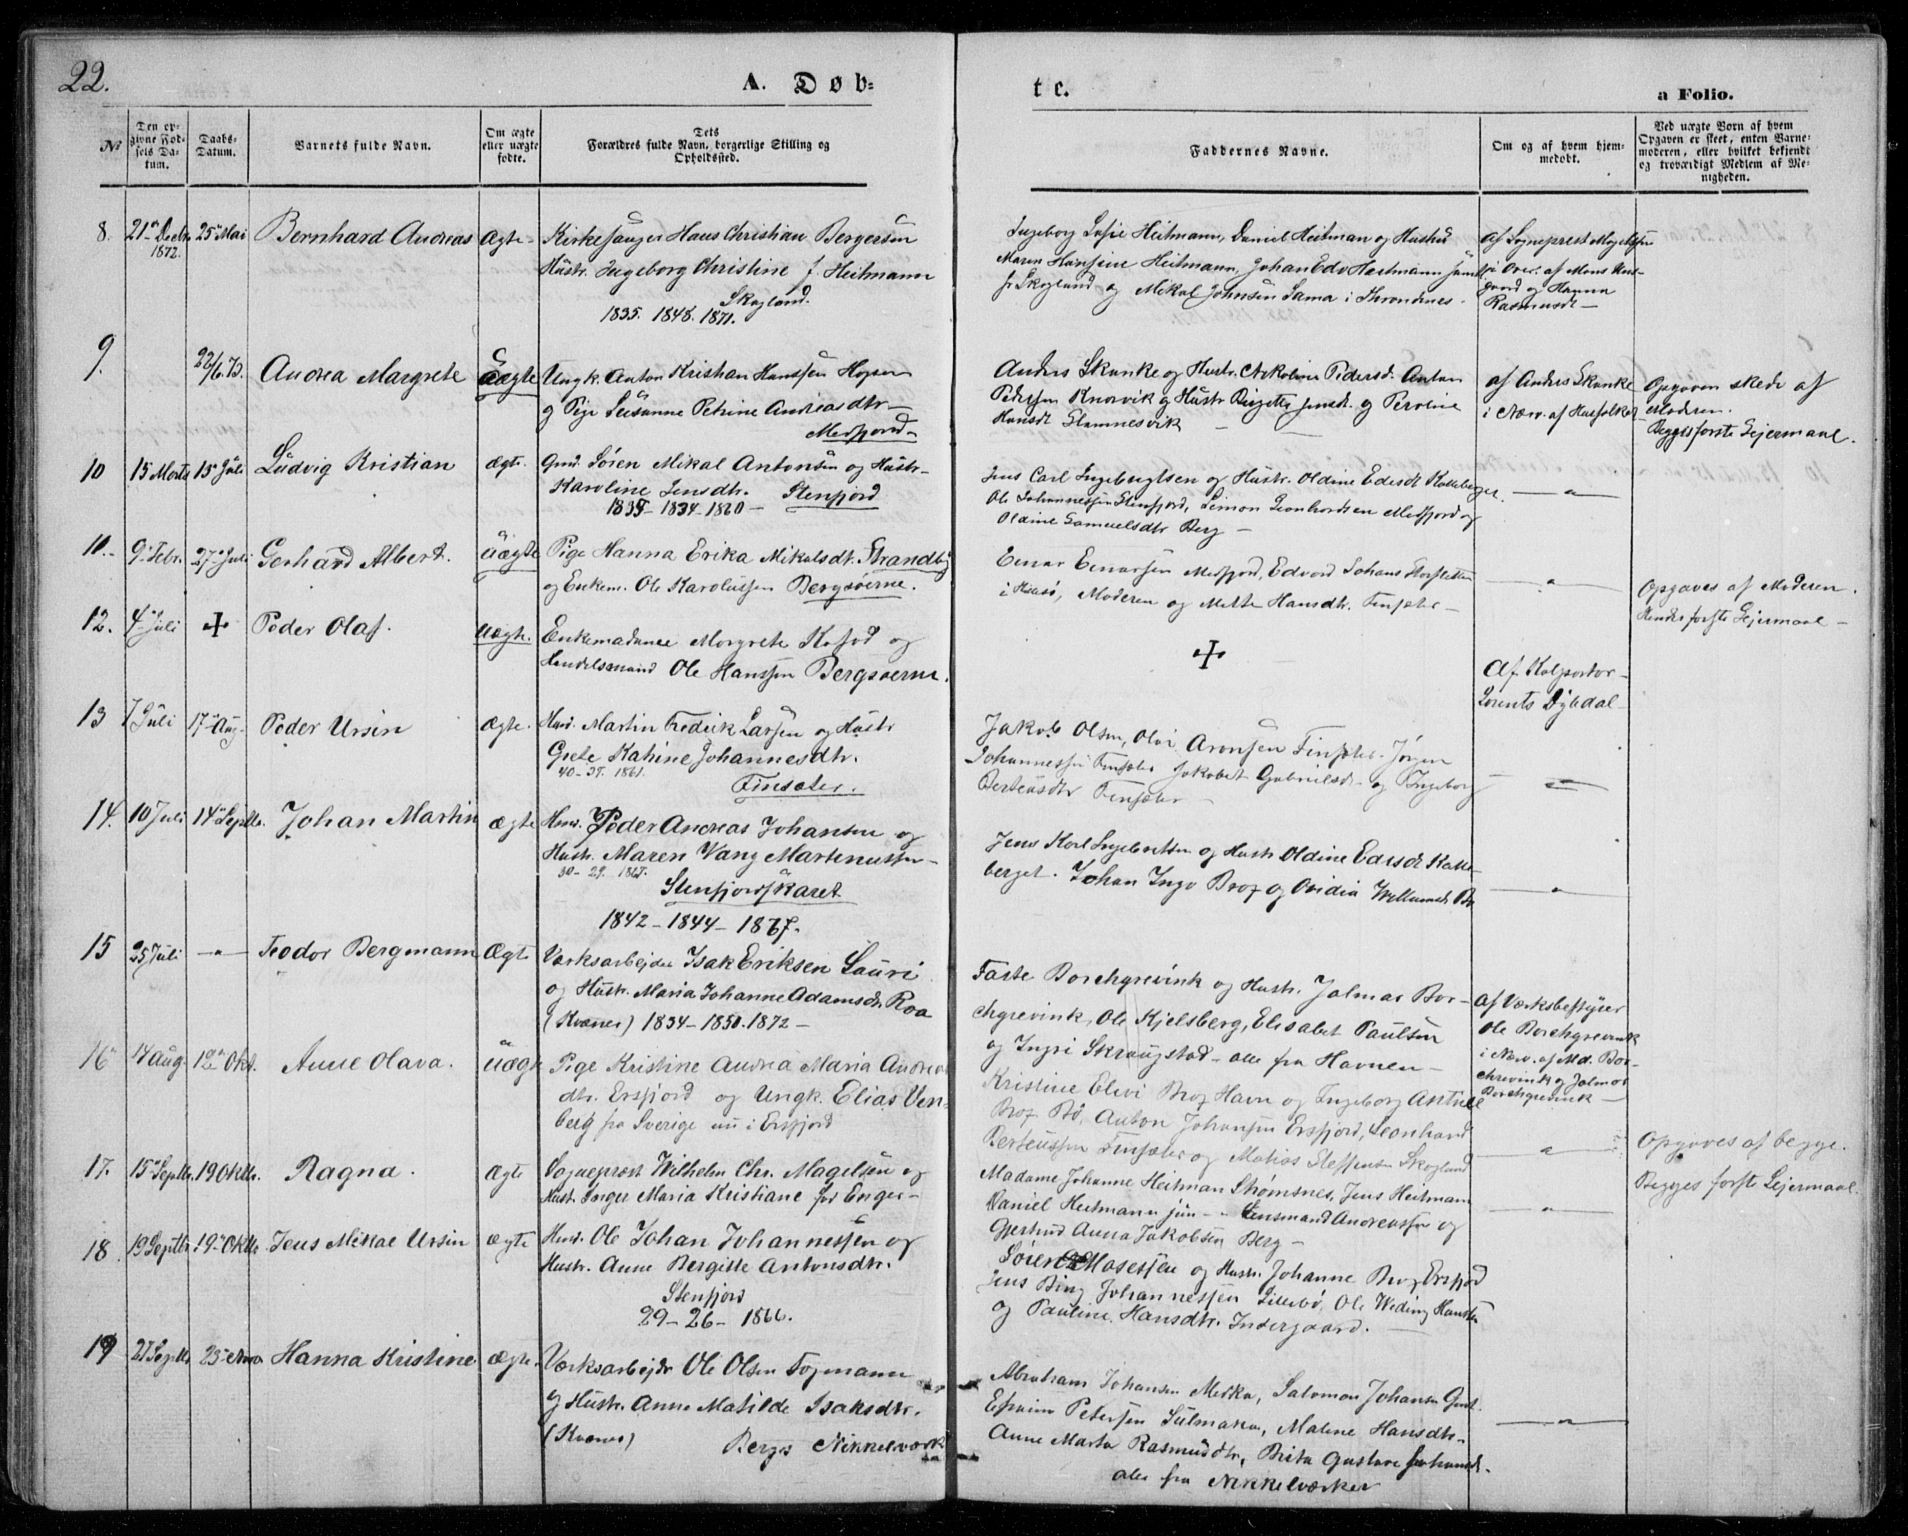 22.
A. Døb=
te.
a Folio.
No
Den op-
givne Fød-
sels Da-
tum.
Daabs-
Datum.
Barnets fulde Navn.
Om ægte
eller uægte
fødte.
Dets
Forældres fulde Navn, borgerlige Stilling og
Opholdssted.
Faddernes Navne.
Om og af hvem hjem-
medøbt.
Ved uægte Børn af hvem
Opgaven er skeet, enten Barne-
moderen, eller hvilket bekjendt
og troværdigt Medlem af Me-
nigheden.
8. 21de Decbr. 1872. 25de Mai Bernhard Andreas ægte
Kirkesanger Hans Christian Bergersen
Hustr. Ingeborg Christine f. Heitmann
Skogland.
1835. 1848. 1871.
Ingeborg Sofie Heitmann, Daniel Heitman og Hustru
Maren Hansine Heitmann, Johan Edv Heitmann
fr Skogland og Mikal Johnsen Sama i Throndenes.
af Sogneprest Magelssen
i Ovv. af Mons
gaard og Hanna
Rasmusdt
9. 22/6 73. Andrea Margrete Uægte
Ungk. Anton Kristian Hanssen
og Pige Susanne Petrine Andreasdtr
Medfjord
Anders Skanke og Hustr. Nikoline Pedersd. Anton
Pedersen Knarvik og Hustr Birgitte Jensd. og Peroline
Hansdt Flamnesvik
af Anders Skanke
i Nærv. af Husfolket
Opgaven skede af
Moderen.
Begges første Lejermaal.
10 15 Marts 13de Juli Ludvig Kristian ægte.
Gmd. Sören Mikal Antonsen og Hustr-
Karoline Jensdtr. Stenfjord
1835-1834-1860
Jens Carl Ingebrigtsen og Hustr. Oldine Edisdt Kolleberget.
Ole Johannessen Stenfjord, Simon Leonhardsen Medfjord og
Oldine Samuelsdtr Berg
11. 9de Febr. 27de Juli Gerhard Albert. Uægte
Pige Hanna Erika Mikalsdt. Strandby
og Enkem. Ole Karolussen Bergsøerne.
Einar Einarsen Medfjord, Edvard Johans
i Hasø, Moderen og Mette Hansdtr. Finsæter
Opgaves af Moderen.
Hendes første Lejermaal
12. 4de Juli + Peder Olaf. Uægte.
Enkemadame Morgrete Kofod og
Handelsmand Ole Hanssen Bergsøerne.
+
Af Kolportør
Lorents Dybdal
13 7 Juli 17de Aug. Peder Ursin ægte.
Hmd. Martin Fredrik Larsen og Hustr
Grete Katrine Johannesdtr.
40-37. 1861.
Finsæter.
Jakob Olsen, Olai Aronsen Finsæter. Jörgen
Johannessen Finsæter Jakobet Gabrielsd. og Ingeborg
Berteusdtr Finsæter
14. 10 Juli 14de Septbr. Johan Martin ægte
Hmd. Peder Andreas Johansen og
Hustr. Maren Vang Martinussen
30-29. 1867.
Stenfjordskaret
1842-1844-1867.
Jens Karl Ingebrittsen og Hustr Oldine Edisdt Kolle-
berget. Johan Ingv Brox og Ovidia
15 25 Juli Teodor Bergmann Ægte
Værksarbejder Isak Eriksen Lauri
og Hustr. Maria Johanne Adamsdr. Roa
(Kvæner) 1834-1850. 1872
Faste Borchgrevink og Hustr. Jalmar Bor-
chgrevink, Ole Kjelsberg, Elisabet Paulsen
og Ingri Skraugstad alle fra Havnen
Af Værksbestyrer
Ole Borchgrevink
i Nærv. af Md. Bor-
chrevink og Jalmar
Borchgrevink
16 14 Aug. 12te Okt. Anne Olava. Uægte
Pige Kristine Andrea Maria Andreas
dtr. Ersfjord og Ungk. Elias Ven-
berg fra Sverige nu i Ersfjord
Kristine Elevi Brox Havn og Ingeborg
Brox Bö, Anton Johansen Ersfjord, Leonhard
Berteussen Finsæter og Matias Steffensen Skogland
Opgaves af begge.
Begges første Lejermaal.
17. 15de Septbr. 19 Oktbr. Ragna. ægte
Sogneprest Wilhelm Chr. Magelsen og
Hust. Inger Maria Kristiane fød Enger
Madame Johanne Heitman Strømsnes, Jens Heitman
Daniel Heitmann jun- Lensmand Andreassen og
Gjertrud Anna Jakobsen Berg
18. 19 Septbr. 19de Oktbr. Jens Mikal Ursin ægte
Hmd. Ole Johan Johannessen og
Hustr. Anne Bergitte Antonsdtr.
Stenfjord
29-26-1866.
Sören Mosesen og Hustr. Johanne Brox Ersfjord
Jens Bing Johannessen Lillebö, Ole Weding Hansen
og Pauline Hansdtr. Indergaard.
19 21 Septbr 23de Nov Hanna Kristine ægte.
Værksarbejdr Ole Olsen Fogmann
og Hustr. Anne Matilde Isaksdtr.
(Kvæner) Bergs Nikkelværk
Abraham Johansen Meska, Salomon Johansen
Efraim Petersen Sulmaka, Malene Hansdtr.
Anne Marta Rasmusdtr, Brita Gustave Johansdt.
alle fra Nikkelværket